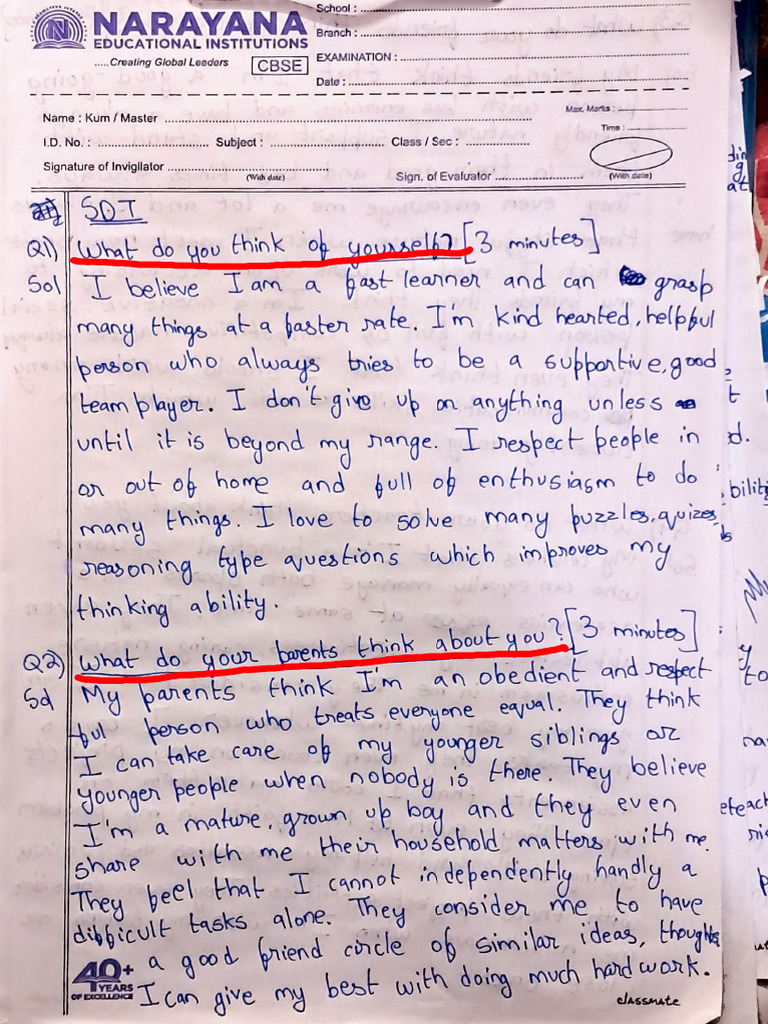 NARAYANA
EDUCATIONAL INSTITUTIONS
.....Creating Global Leaders
CBSE
School :
Branch :
EXAMINATION :
Date :
Name : Kum / Master
Max. Marks :
Time :
I.D. No. : Subject : Class / Sec :
Signature of Invigilator
(With date)
Sign. of Evaluator
(With date)
SDT
Q1) What do you think of yourself? [3 minutes]
Sol I believe I am a fast learner and can grasp
many things at a faster rate. I'm kind hearted, helpful
person who always tries to be a supportive, good
team player. I don't give up on anything unless
until it is beyond my range. I respect people in
or out of home and full of enthusiasm to do
many things. I love to solve many puzzles, quizes,
reasoning type questions which improves my
thinking ability.
Q2) What do your parents think about you? [3 minutes]
Sol My parents think I'm an obedient and respect
ful person who treats everyone equal. They think
I can take care of my younger siblings or
younger people when nobody is there. They believe
I'm a mature, grown up boy and they even
share with me their household matters with me.
They feel that I cannot independently handly a
difficult tasks alone. They consider me to have
a good friend circle of similar ideas, thoughts
I can give my best with doing much hard work.
40+
YEARS
OF EXCELLENCE
classmate